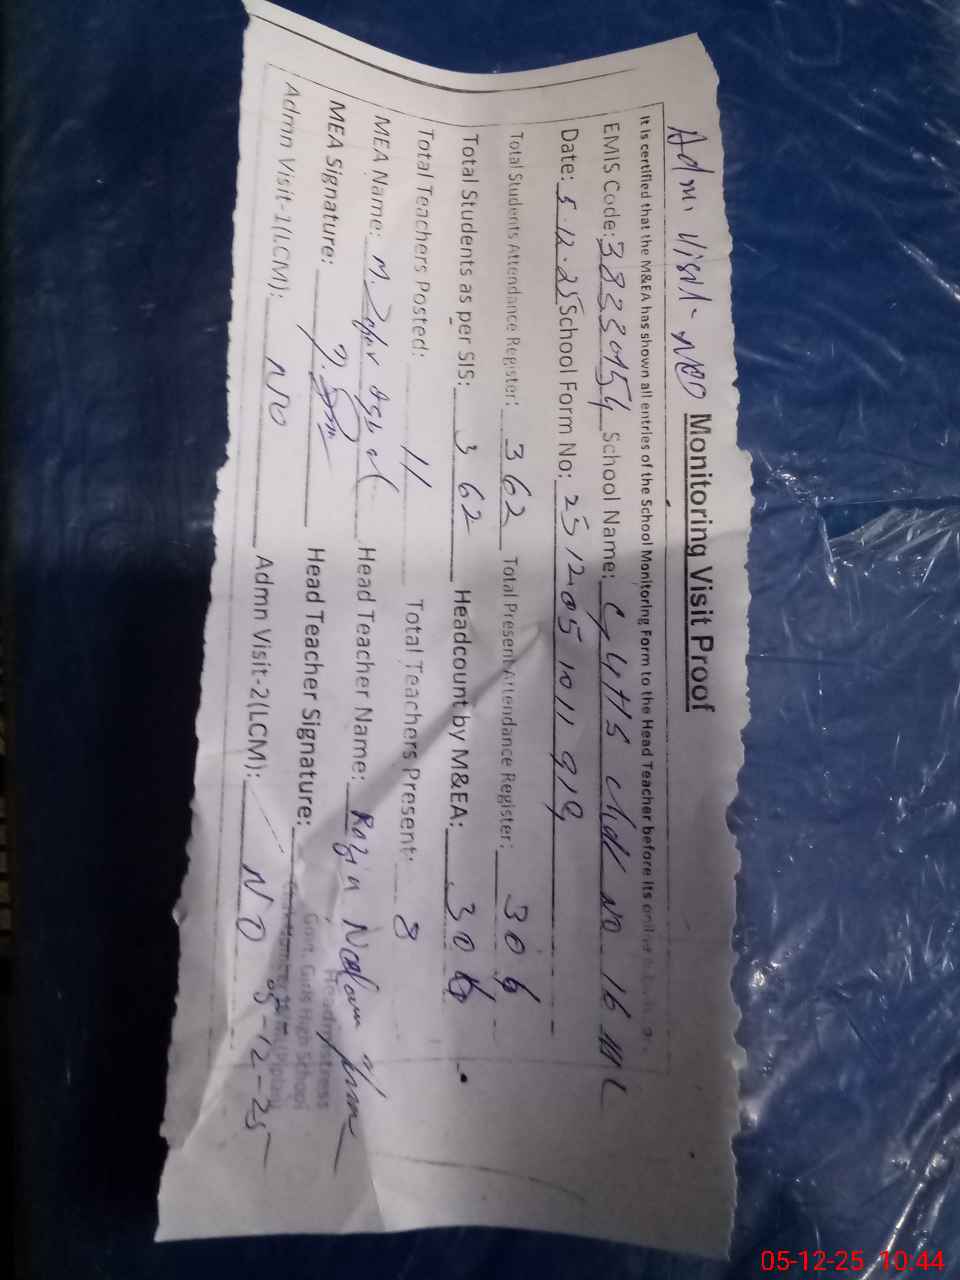 Adm. Visit - NO Monitoring Visit Proof
It is certified that the M&EA has shown all entries of the School Monitoring Form to the Head Teacher before its
EMIS Code: 38230154 School Name: No 16
Date: 5.12.25 School Form No: 2512051011919
Total Students Attendance Register: 362 Total Present Attendance Register: 306
Total Students as per SIS: 362 Headcount by M&EA: 306
Total Teachers Posted: 11 Total Teachers Present: 8
MEA Name: M. Head Teacher Name:
MEA Signature: Head Teacher Signature:
Headmistress
Govt. Girls High School
Admn Visit-1(LCM): NO Admn Visit-2(LCM): NO
05-12-25
05-12-25 10:44